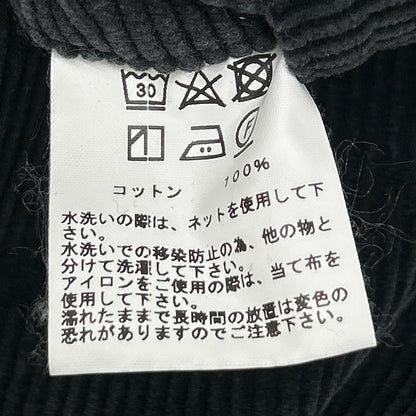 30
F
コットン 100%
水洗いの際は、ネットを使用して下
さい。
水洗いでの移染防止の為、他の物と
分けて洗濯して下さい。
アイロンをご使用の際は、当て布を
使用して下さい。
濡れたままで長時間の放置は変色の
恐れがありますのでご注意下さい。